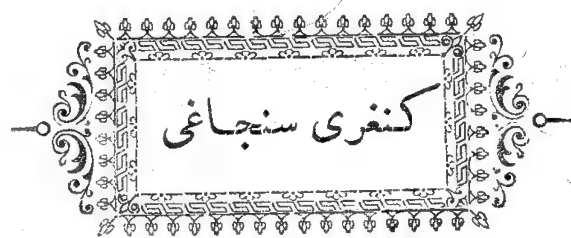 كنغری سنجاغی